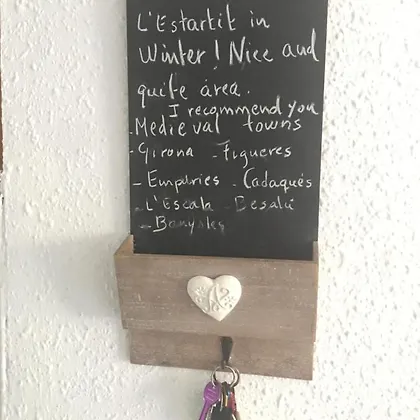 L'Estartit in
Winter! Nice and
quite área.
I recommend you
-Medieval towns
-Girona -Figueres
-Empúries -Cadaqués
-L'Escala -Besalú
-Banyoles